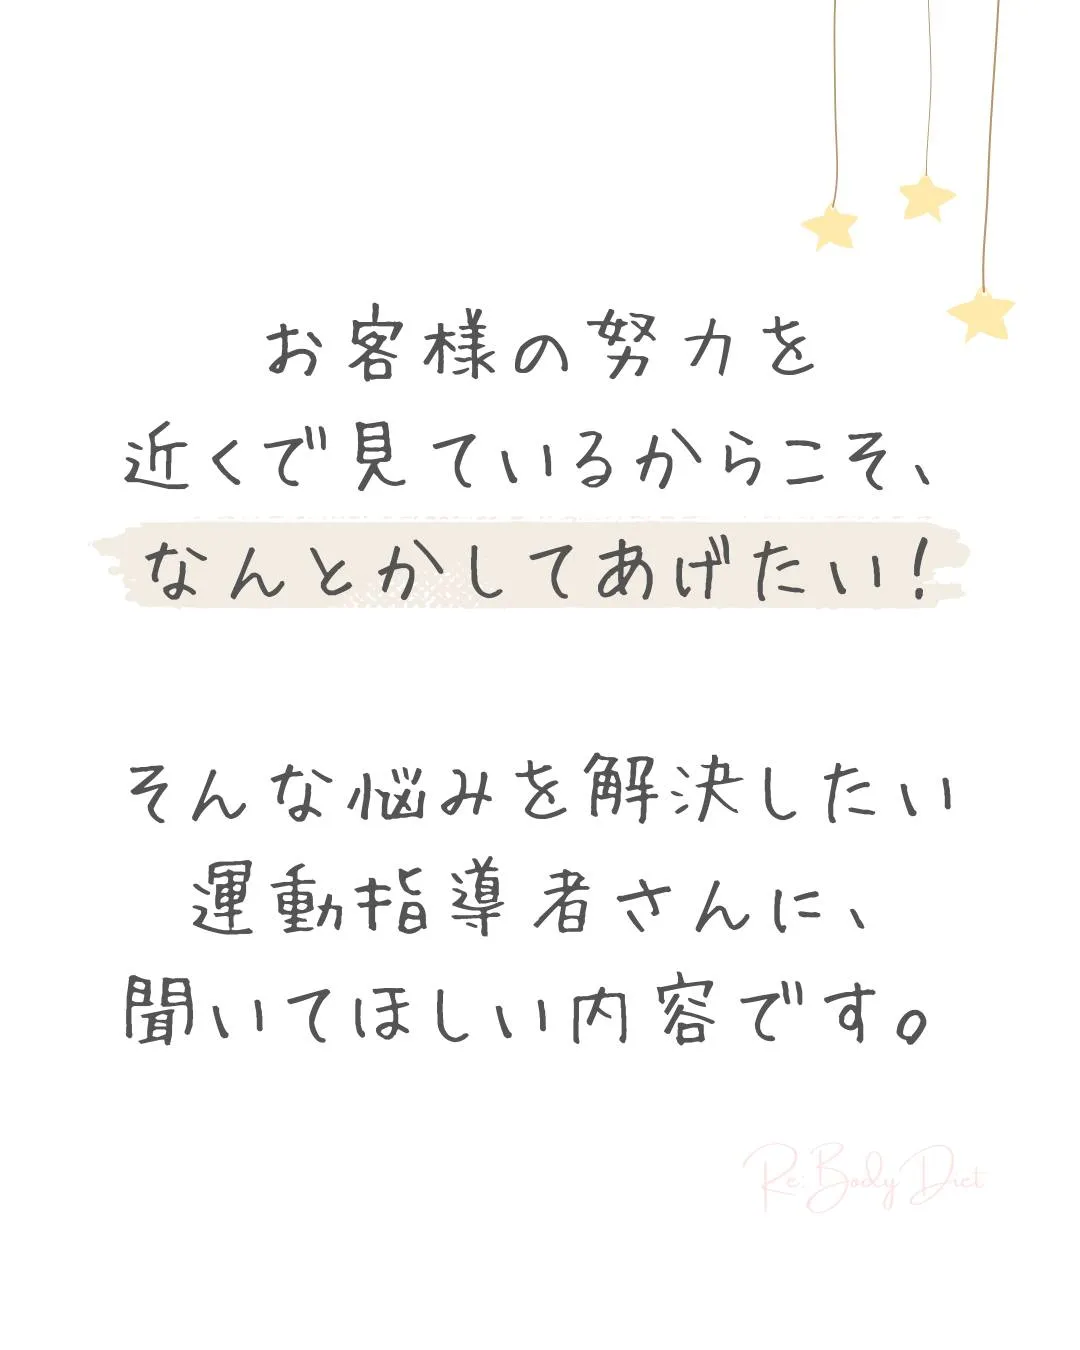 お客様の努力を
近くで見ているからこそ、
なんとかしてあげたい！
そんな悩みを解決したい
運動指導者さんに、
聞いてほしい内容です。
Re:Body Diet